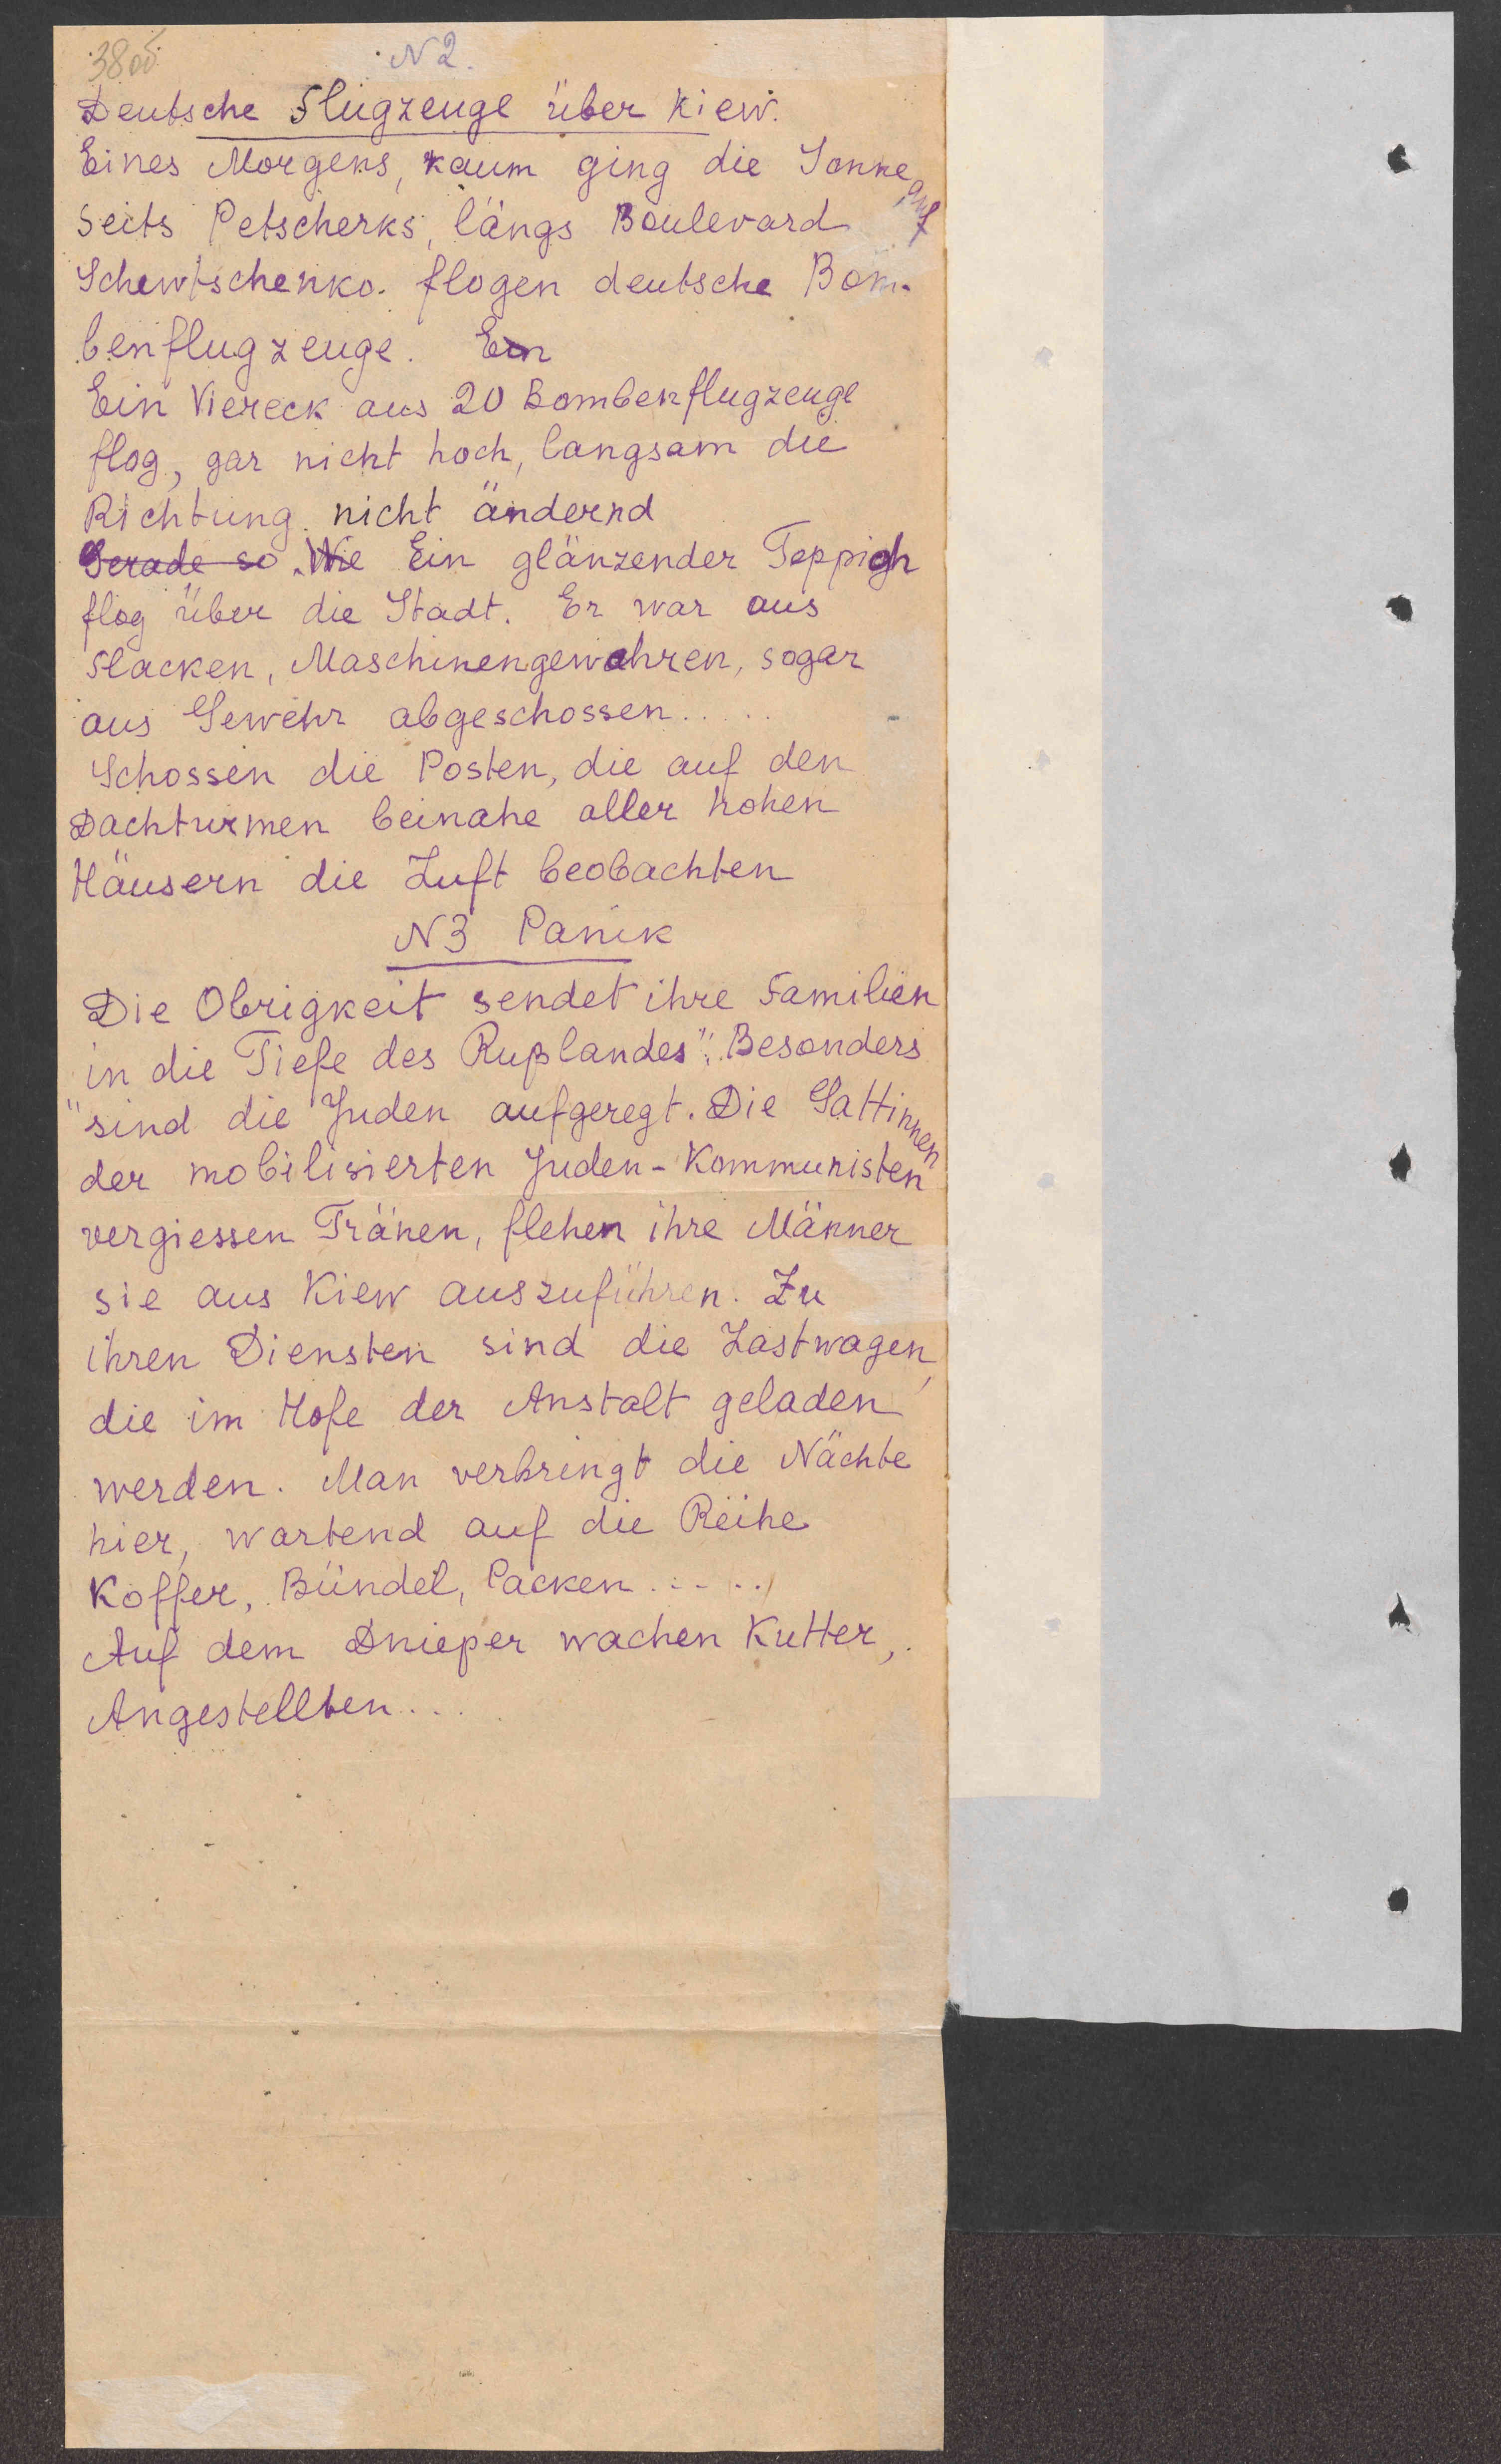 38 об.
N 2.
Deutsche Flugzeuge über Kiew.
Eines Morgens, kaum ging die Sonne auf
seits Petscherks, längs Boulevard
Schewtschenko. flogen deutsche Bom-
benflugzeuge. Ein
Ein Viereck aus 20 Bombenflugzeuge
flog, gar nicht hoch, langsam die
Richtung nicht ändernd
Gerade so. Wie Ein glänzender Teppich
flog über die Stadt. Er war aus
Flacken, Maschinengewehren, sogar
aus Gewehr abgeschossen.....
Schossen die Posten, die auf den
Dachturmen beinahe aller hohen
Häusern die Luft beobachten
N3 Panik
Die Obrigkeit sendet ihre Familien
"in die Tiefe des Rußlandes". Besonders
"sind die Juden aufgeregt. Die Gattinnen
der mobilisierten Juden-Kommunisten
vergiessen Tränen, flehen ihre Männer
sie aus Kiew auszuführen. Zu
ihren Diensten sind die Lastwagen,
die im Hofe der Anstalt geladen
werden. Man verbringt die Nächte
hier, wartend auf die Reihe
Koffer, Bündel, Packen.....
Auf dem Dnieper wachen Kutter,.
Angestellten...